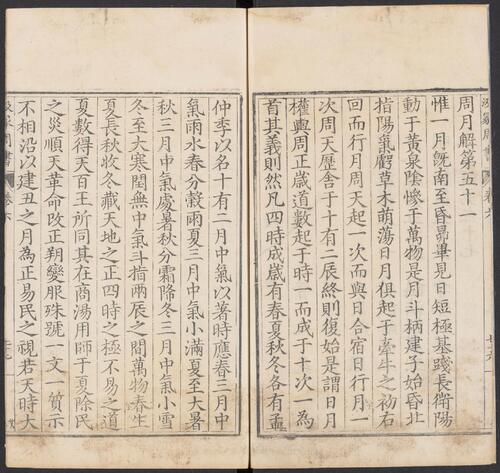 周月解第五十一
惟一月既南至昏昴畢見日短極基踐長微陽
動于黃泉陰慘于萬物是月斗柄建子始昏北
指陽氣虧草木萌蕩日月俱起于牽牛之初右
回而行月周天起一次而與日合宿日行月一
次周天歷舍于十有二辰終則復始是謂日月
權輿周正歲道數起于時一而成于十次一為
首其義則然凡四時成歲有春夏秋冬各有孟
仲季以名十有二月中氣以著時應春三月中
氣雨水春分穀雨夏三月中氣小滿夏至大暑
秋三月中氣處暑秋分霜降冬三月中氣小雪
冬至大寒閏無中氣斗指兩辰之間萬物春生
夏長秋收冬藏天地之正四時之極不易之道
夏數得天百王所同其在商湯用師于夏除民
之災順天革命改正朔變服殊號一文一質示
不相沿以建丑之月為正易民之視若天時大
汲冢周書
卷六